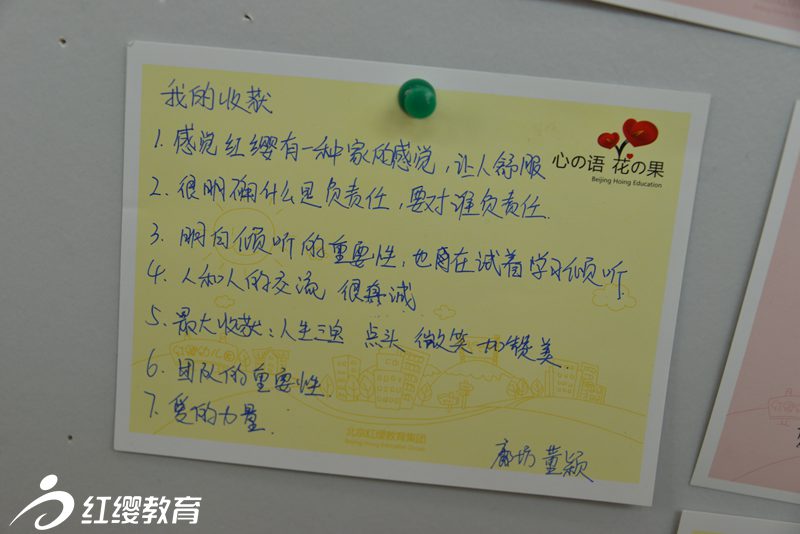 我的收获
1. 感觉红缨有一种家的感觉，让人舒服
心の语 花の果
Beijing Hoing Education
2. 很明确什么是负责任，要对谁负责任.
3. 明白倾听的重要性，也肯在试着学习倾听.
4. 人和人的交流 很真诚
5. 最大收获：人生三宝 点头 微笑 加赞美.
6. 团队的重要性.
7. 爱的力量.
北京红缨教育集团
Beijing Hoing Education Group
廊坊 董颖
红缨教育